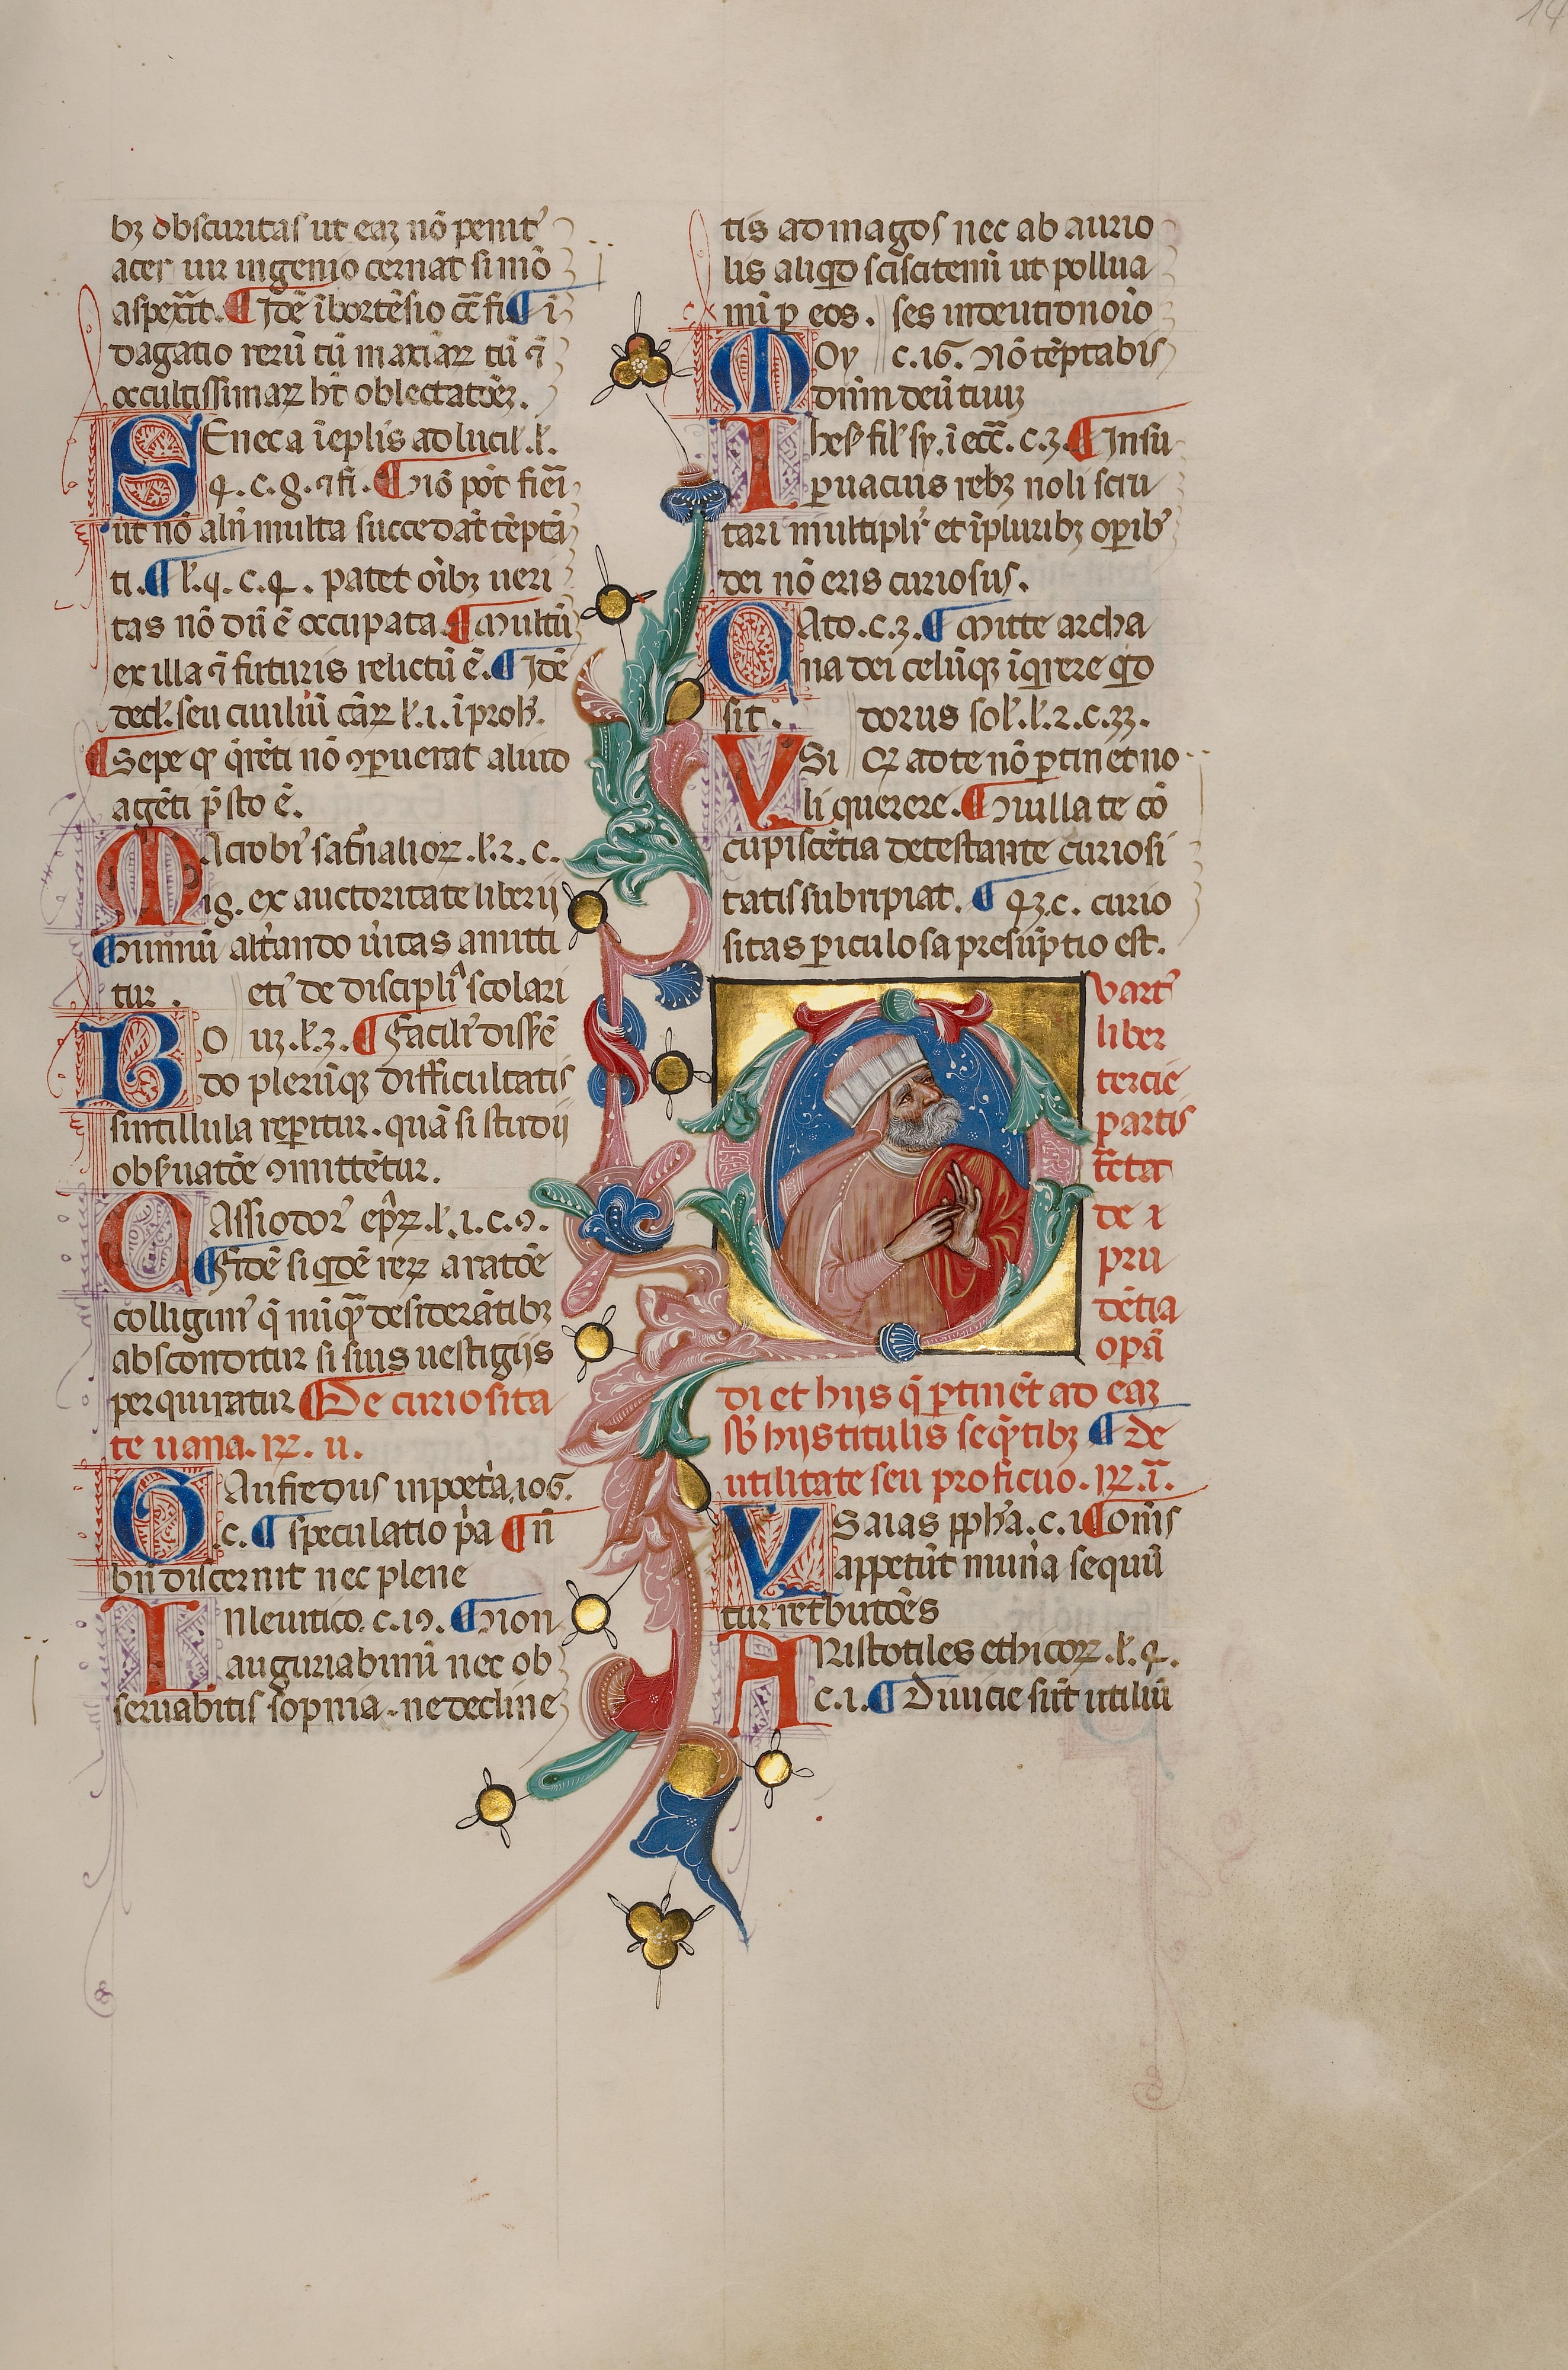 bꝫ obscuritas ut eaꝫ nō penit᷒
acer uir ingenio cernat si nō
aspex̄it. ¶ Idē ī hortēsio c̄c fi ¶ ī
dagatio rerū tū maxiaꝝ tū ⁊
occultissimaꝝ hꝫ oblectatōeꝫ.
SEneca ī ep̄lis ad lucil̄. l̄.
4. c. 8. ⁊ fi. ¶ Nō pōt fieri
ut nō alīn multa succedāt tēptā
ti. ¶ l̄. 4. c. 4. patet oībꝫ ueri
tas nō dū ē occupata ¶ Multū
ex illa ⁊ futuris relictū ē. ¶ Idē
decl̄. seu ciuiliū cāꝝ l̄. 1. ī proh̄.
¶ Sepe qꝫ q̄rēti nō ꝯparuerat aliud
agēti p̄sto ē.
MAcrobi᷒ sat̄naliorꝝ. l̄. 2. c.
ig. ex auctoritate liberij
¶ Nimiū alt̄cando ūitas amitti
tur. eti᷒ de discipli᷒ᵃ scolari
BO uꝫ. l̄. 3. ¶ Facili᷒ dissē
do plerūqꝫ difficultatis
sintillula reperitur. quā si studij
obs̄uatōe ꝯmittētur.
CAssiodor᷒ ep̄rꝝ. l̄. 1. c. 9.
¶ Eidē siqͥdē reꝝ a ratōe
colligim᷒ q̄ nūqͣꝫ desiderātibꝫ
absconditur si suis uestigijs
perquiratur ¶ De curiosita
te uana. R̄. v.
GAufredus in poet̄a. 106.
.c. ¶ speculatio p̄a ¶ n̄
bn̄ discernit nec plene
IN leuitico. c. 19. ¶ Non
auguriabimī nec ob
seruabitis sōpnia. ne decline
tis ad magos nec ab aurio
lis aliqͥd sciscitemī ut pollua
mī ꝑ eos. ses in deutionoīo
MOy c. 16. Nō tēptabis
dn̄m deū tuuꝫ
Ihes᷒ fil᷒ sy. ī ecc̄. c. 3. ¶ In su
ꝑuacuis rebꝫ noli scru
tari multipl᷒r et ī pluribꝫ opib᷒
dei nō eris curiosus.
CAto. c. 3. ¶ Mitte archa
na dei celūqꝫ īqͥrere qͥd
sit. dorus sol̄. l̄. 2. c. 33.
YSi Qꝫ ad te nō ꝑtinet no
li querere. ¶ Nulla te cō
cupiscētia detestante curiosi
tatis subripiat. ¶ 43. c. curio
sitas ꝑiculosa presūptio est.
Quart᷒
liber
tercie
partis
t̄cta᷒
de ī
pru
dētia
opā
di et hijs q̄ ꝑtinēt ad eaꝫ
sb᷒ hijs titulis seqͣtibꝫ ¶ de
utilitate seu proficuo. R̄. ī.
YSaias ꝓph̄a. c. 1 ¶ Om̄s
appetūt munīa sequū
tur ret̄butōes
ARistotiles ethicorꝝ. l̄. 4.
c. 1. ¶ Diuicie sūt utiliū
14